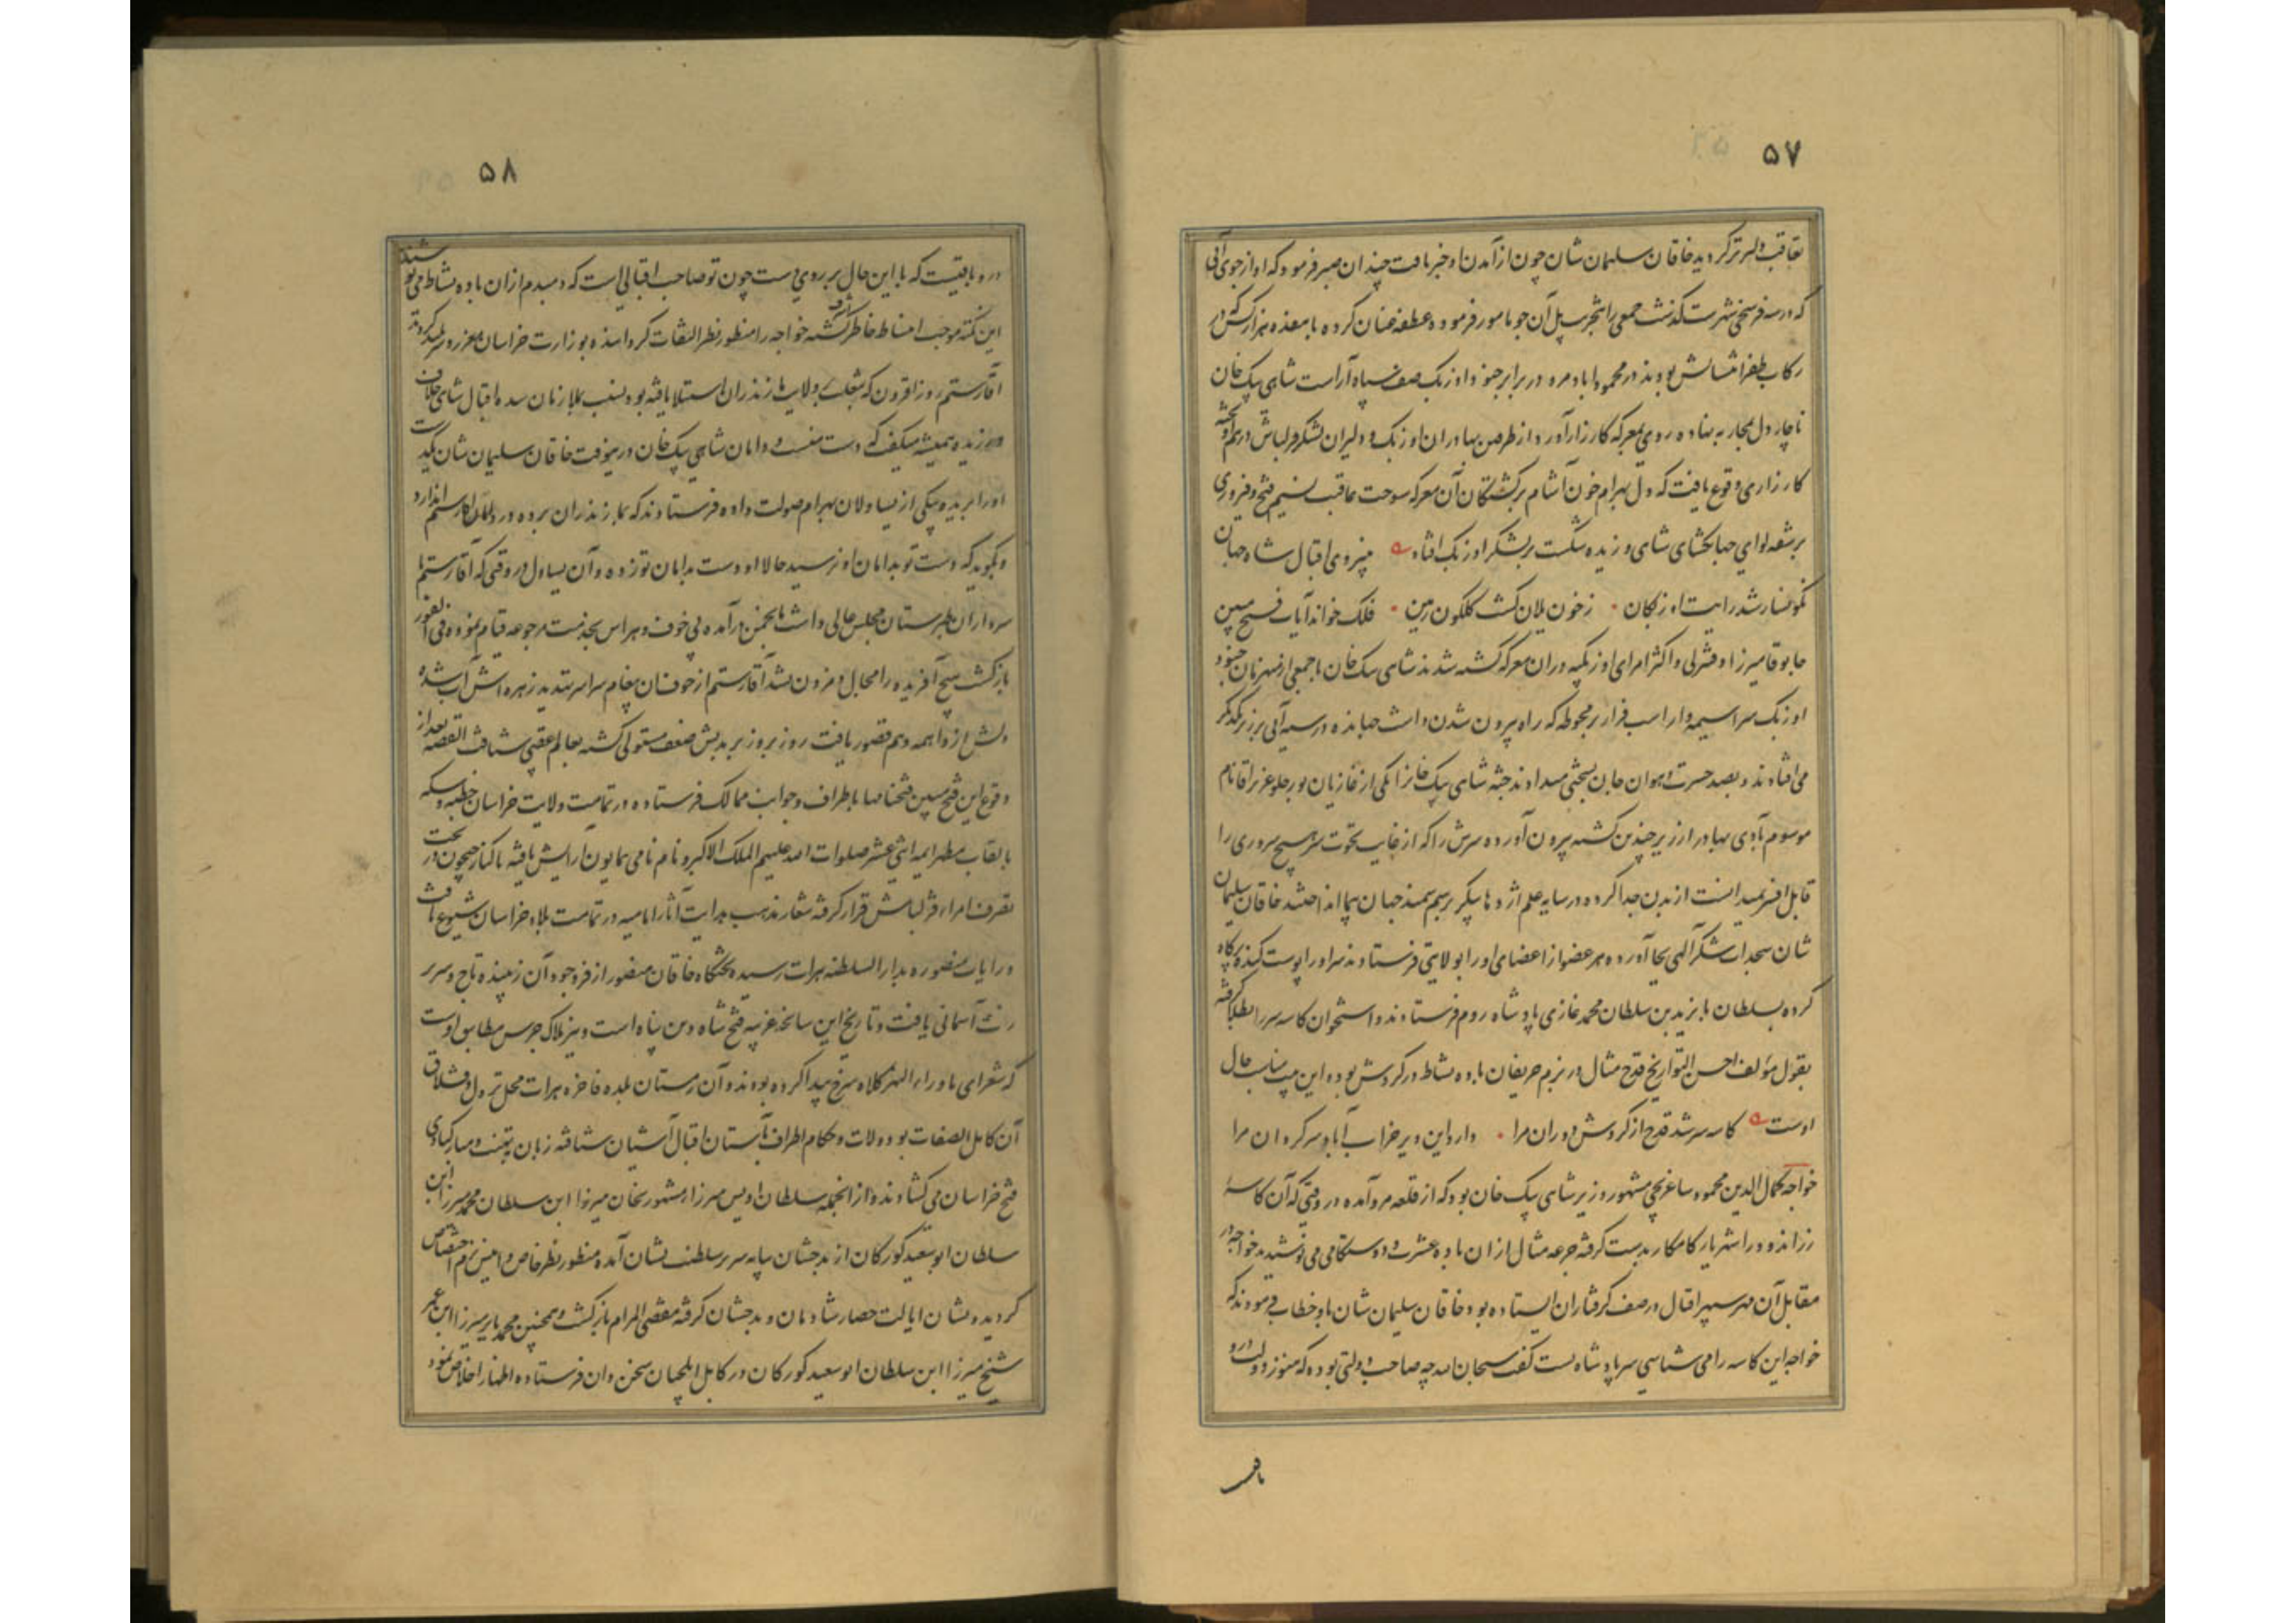 ۵۷
تعاقب دلیرتر گردید خاقان سلیمان شان چون از آمدن او خبر یافت چندان صبر فرمود که او از جوی آبی
که در سه فرسخی شهرست گذشت جمعی را بتخریب پل آن جو مامور فرموده عطف عنان کرده با هفده هزار کس که در
رکاب ظفر انتسابش بودند در محموداباد مرو در برابر جنود اوزبک صف سپاه آراست شاهی بیک خان
ناچار دل بمحاربه نهاده روی بمعرکه کارزار آورد از طرفین بهادران اوزبک و دلیران لشکر قزلباش درهم آویخته
کارزاری وقوع یافت که دل بهرام خون آشام برکشتگان آن معرکه سوخت عاقبت نسیم فتح و فیروزی
بر شقه لوای جهانگشای شاهی وزیده شکست بر لشکر اوزبک افتاد ه بنیروی اقبال شاه جهان
نگونسار شد رایت اوزبکان • ز خون یلان گشت گلگون زمین • فلک خواند آیات فتح مبین
جانوفا میرزا و قنبرلی و اکثر امرای اوزبکیه در ان معرکه کشته شدند شاهی بیک خان با جمعی از منهزمان جنود
اوزبک سراسیمه وار اسب فرار بر محوطه که راه بیرون شدن نداشت جهانده در سیه آبی بر زبر یکدیگر
می افتادند و بصد حسرت و هوان جان بسختی میدادند جثه شاهی بیک خانرا یکی از غازیان بورجلو عزیز آقا نام
موسوم بآدی بهادر از زیر چندین کشته بیرون آورده سرش را که از غایت نخوت سر هیچ سروری را
قابل افسر نمیدانست از بدن جدا کرده در سایه علم اژدها پیکر بر سم سمند جهان پیما انداختند خاقان سلیمان
شان سجدات شکر آلهی بجا آورده هر عضو از اعضای او را بولایتی فرستادند سر او را پوست کنده پرکاه
کرده بسلطان بایزید بن سلطان محمد غازی پادشاه روم فرستادند و استخوان کاسه سر را بطلا گرفته
بقول مؤلف احسن التواریخ قدح مثال در بزم حریفان باده نشاط در گردش بوده این بیت مناسب حال
اوست ه کاسه سر شد قدح از گردش دوران مرا • دارد این دیر خراب آباد سرگردان مرا
خواجه کمال الدین محمود ساغرچی مشهور وزیر شاهی بیک خان بود که از قلعه مرو آمده در وقتی که آن کاسهٔ
زراندود را شهریار کامکار بدست گرفته جرعه مثال ازان باده عشرت و دوستکامی می نوشید خواجه در
مقابل آن مهر سپهر اقبال در صف گرفتاران ایستاده بود خاقان سلیمان شان باو خطاب فرمودند که
خواجه این کاسه را می شناسی سر پادشاه تست گفت سبحان الله چه صاحب دولتی بوده که هنوز دولت دارد
۵۸
درو باقیست که با این حال بر روی دست چون تو صاحب اقبالی است که دمبدم ازان باده نشاط می نوشد
این نکته موجب انبساط خاطر اشرف گشته خواجه را منظور نظر التفات گردانیده بوزارت خراسان معزز و سربلند گردید
آقا رستم روزافزون که بتغلب بولایت مازندران استیلا یافته بود نسبت بملازمان سده اقبال شاهی خلاف
ورزیده همیشه میگفت که دست منست و دامان شاهی بیک خان درینوقت خاقان سلیمان شان یکدست
او را بریده بیکی از یساولان بهرام صولت داده فرستادند که بمازندران برده در دامان آقا رستم اندازد
و بگوید که دست تو بدامان او نرسید حالا او دست بدامان تو زده و آن یساول در وقتی که آقا رستم با
سرداران طبرستان مجلس عالی داشت بانجمن درآمده بی خوف و هراس بخدمت مرجوعه قیام نموده فی الفور
بازگشت هیچ آفریده را مجال دم زدن نشد آقا رستم از خوف ان پیغام سراسر تهدید زهره اش آب شده
دلش از واهمه وهم قصور یافت روز بروز بر بدنش ضعف مستولی گشته بعالم عقبی شتافت القصه بعد از
وقوع این فتح مبین فتحنامها باطراف و جوانب ممالک فرستاده در تمامت ولایت خراسان خطبه و سکه
بالقاب مطهر ایمه اثنی عشر صلوات الله علیهم الملک الاکبر و نام نامی همایون آرایش یافته با کنار جیحون در تحت
تصرف امراء قزلباش قرار گرفته شعار مذهب هدایت آثار امامیه در تمامت بلاد خراسان شیوع یافت
و رایات منصوره بدار السلطنه هرات رسیده تختگاه خاقان منصور از فر وجود آن زیبنده تاج و سریر
زینت آسمانی یافت و تاریخ این سانحه غریبه فتح شاه دین پناه است و نیز بلاک جرس مطابق اوست
که شعرای ماوراء النهر کلاه سرخ پیدا کرده بودند و آن زمستان بلده فاخره هرات محل نزول و قشلاق
آن کامل الصفات بوده ولات و حکام اطراف بآستان اقبال آشیان شتافته زبان بتهنیت و مبارکبادی
فتح خراسان می گشادند و از انجمله سلطان اویس میرزا مشهور بخان میرزا ابن سلطان محمد میرزا ابن
سلطان ابوسعید گورکان از بدخشان بپایه سریر سلطنت نشان آمده منظور نظر خاص و انیس بزم اختصاص
گردیده نشان ایالت حصار شادمان و بدخشان گرفته مقضی المرام بازگشت و همچنین محمد بابر میرزا ابن عمر
شیخ میرزا ابن سلطان ابوسعید گورکان در کابل ایلچیان سخن دان فرستاده اظهار اخلاص نمود